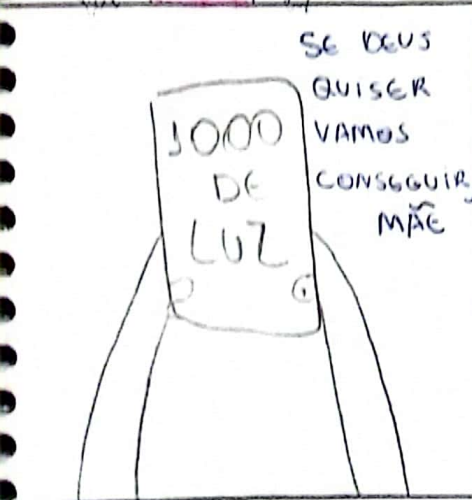 SE DEUS
QUISER
VAMOS
CONSEGUIR,
MÃE
1000
DE
LUZ